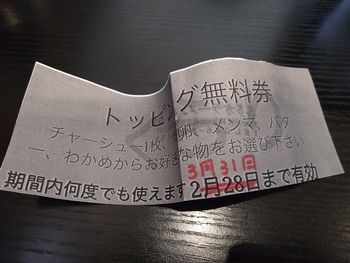 トッピング無料券
チャーシュー1枚、卵、メンマ、バタ
ー、わかめからお好きな物をお選び下さい
3月31日
期間内何度でも使えます2月28日まで有効